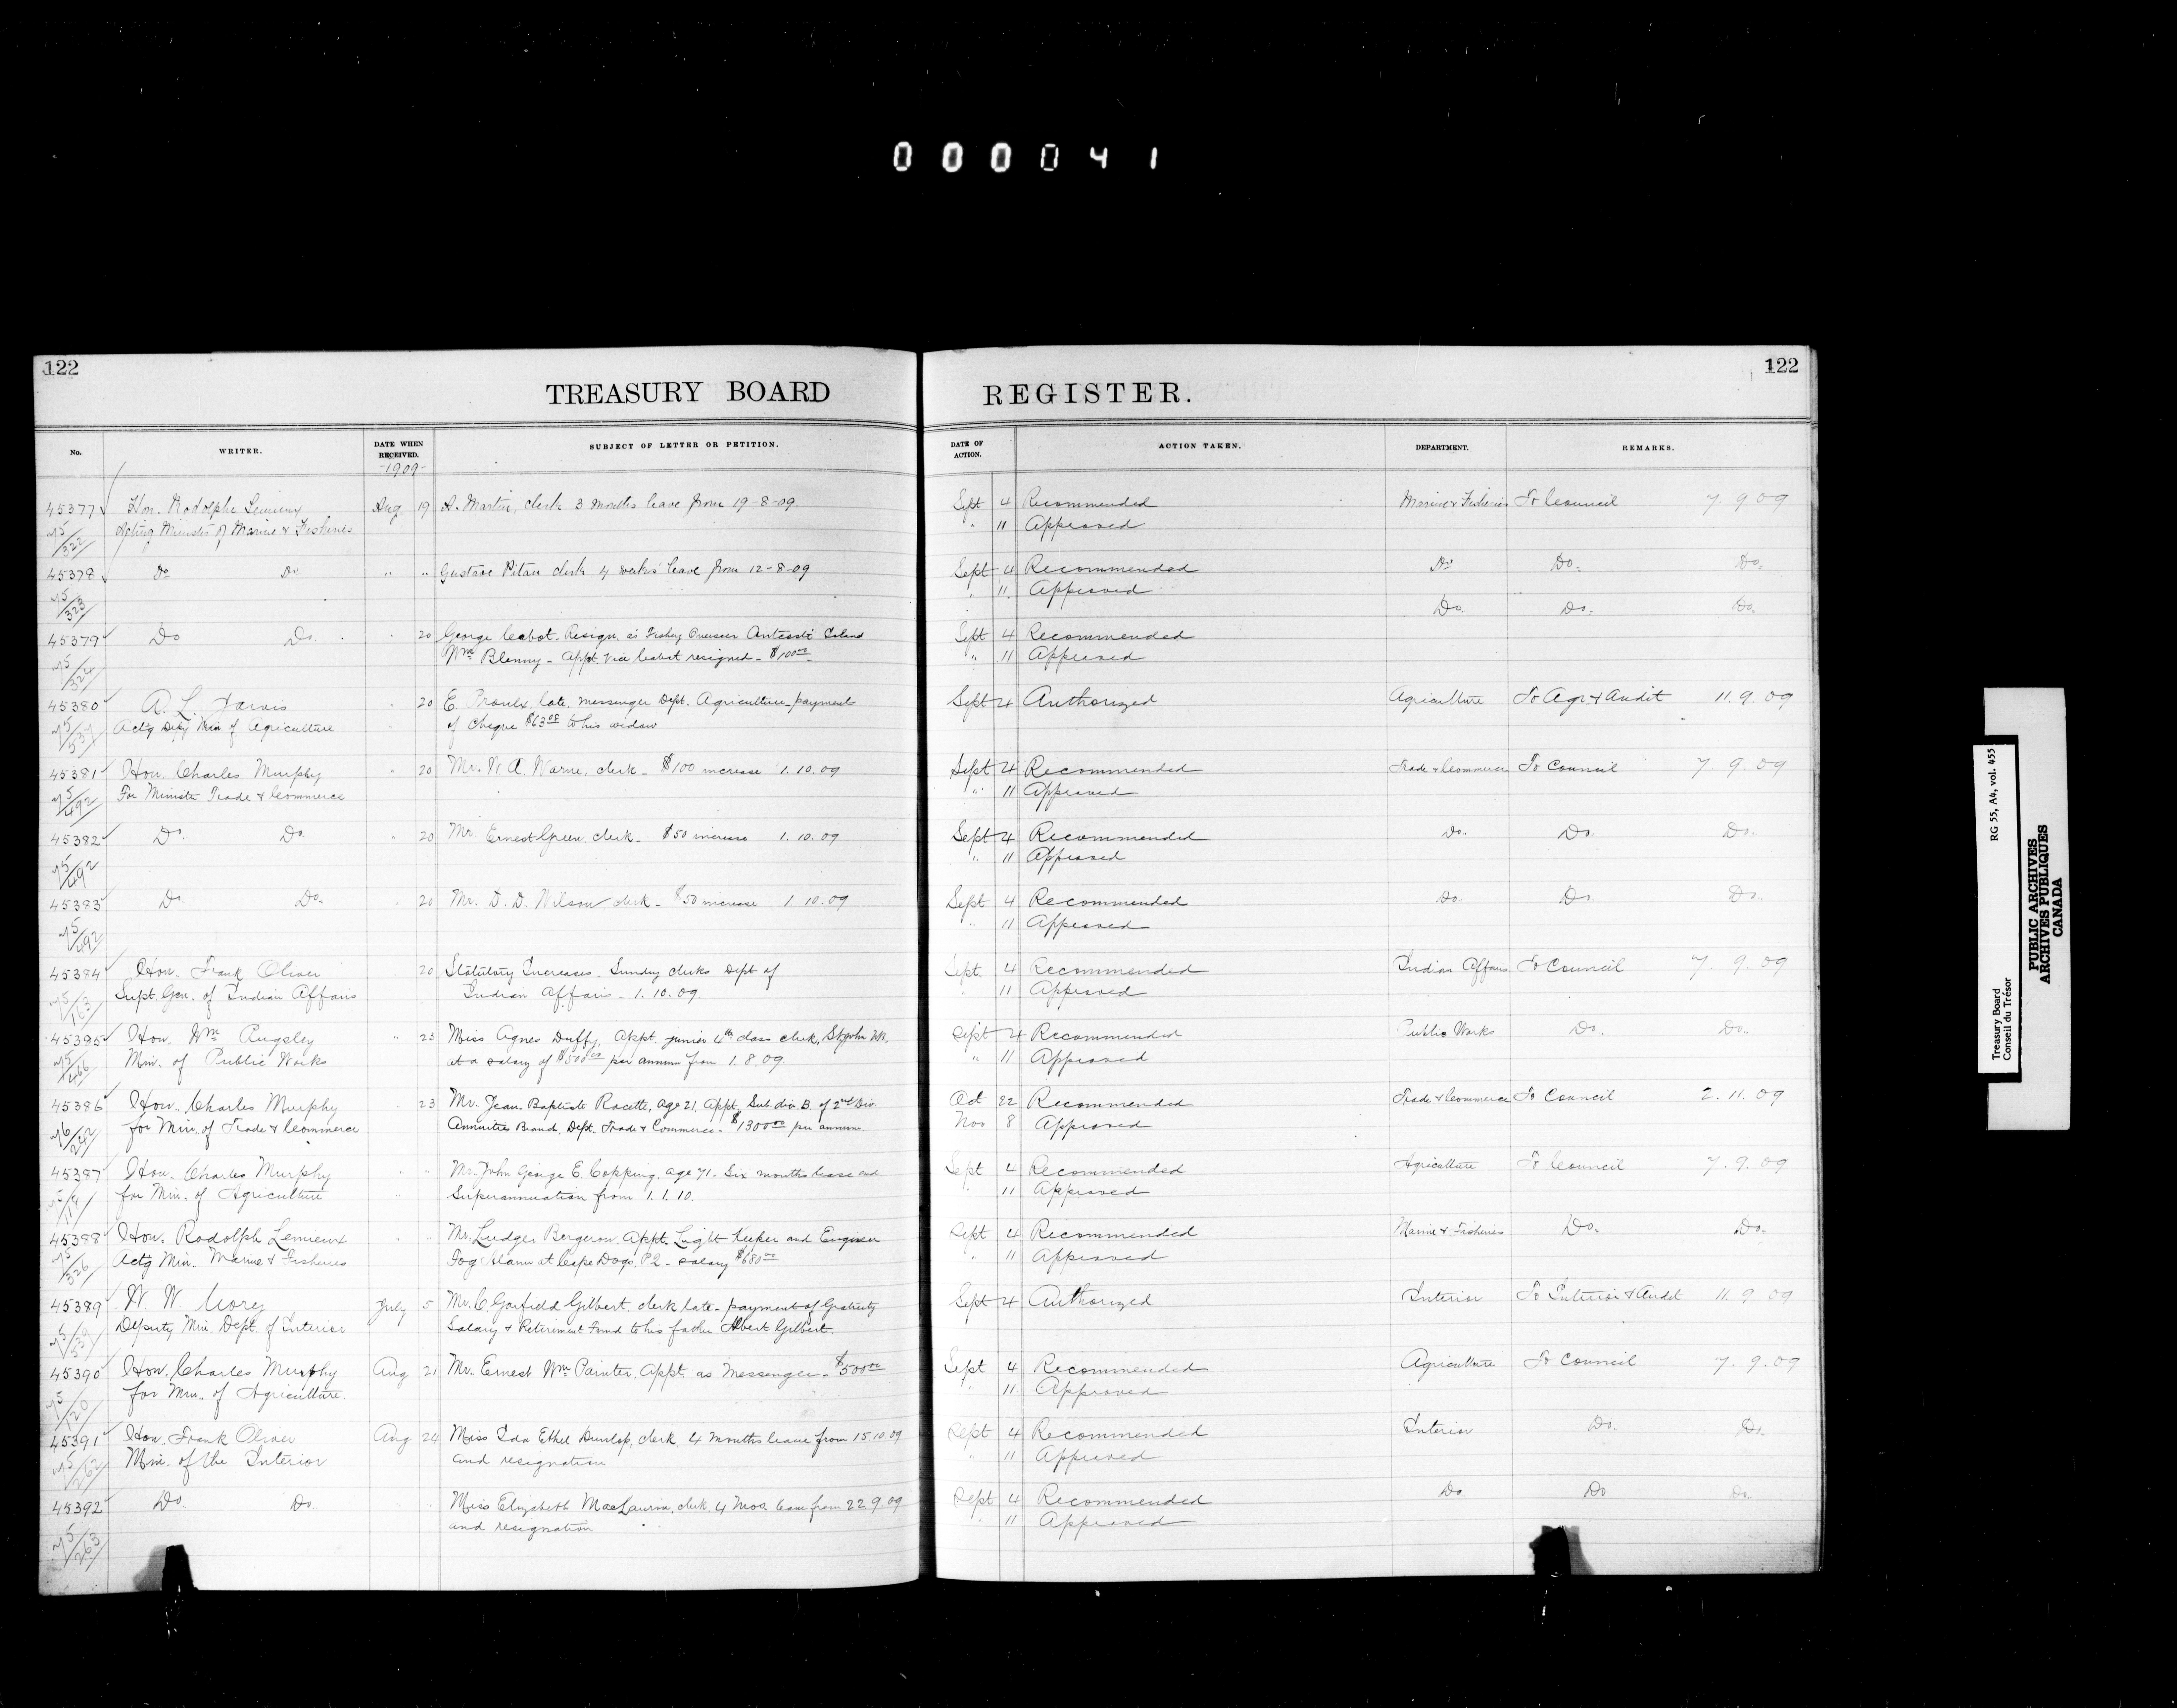 000041
122
122
TREASURY BOARD REGISTER.
No. WRITER. DATE WHEN RECEIVED. SUBJECT OF LETTER OR PETITION. DATE OF ACTION. ACTION TAKEN. DEPARTMENT. REMARKS.
-1909-
45377 Hon. Rodolphe Lemieux Aug 19 A. Martin, clerk 3 months leave from 19-8-09. Sept 4 Recommended Marine & Fisheries To Council 7. 9 09
Acting Minister of Marine & Fisheries " 11 Approved
322
45378 Do Do " " Gustave Pitau clerk 4 weeks leave from 12-8-09 Sept 4 Recommended Do Do. Do.
" 11 Approved
323 Do. Do. Do.
45379 Do Do. 20 George Cabot. Resign. as Fishery Overseer Anticosti Island Sept 4 Recommended
Wm Blenny - Appt. vice Cabot resigned - $100.00 " 11 Approved
324
45380 A. L. Jarvis 20 E. Proulx, late, messenger Dept. Agriculture, payment Sept 4 Authorized Agriculture To Agr. & Audit 11. 9. 09
Actg Dety Min of Agriculture of Cheque $63.08 to his widow
45381 Hon. Charles Murphy 20 Mr. W. A. Warne, clerk - $100 increase 1. 10. 09 Sept 4 Recommended Trade & Commerce To Council 7. 9 09
For Minister Trade & Commerce " 11 Approved
492
45382 Do. Do. 20 Mr. Ernest Green clerk - $50 increase 1. 10. 09 Sept 4 Recommended Do. Do. Do.
" 11 Approved
492
45383 Do. Do. 20 Mr. D. D. Wilson clerk - $50 increase 1 10. 09 Sept 4 Recommended Do. Do. Do.
" 11 Approved
492
45384 Hon. Frank Oliver 20 Statutory Increases. Sundry clerks Dept of Sept 4 Recommended Indian Affairs To Council 7. 9. 09
Supt. Gen. of Indian Affairs Indian Affairs - 1. 10. 09. 11 Approved
45385 Hon. Wm Pugsley " 23 Miss Agnes Duffy, Appt. junior 4th class clerk, St John NB. Sept 4 Recommended Public Works Do. Do.
Min. of Public Works at a salary of $500.00 per annum from 1. 8. 09 " 11 Approved
466
45386 Hon. Charles Murphy 23 Mr. Jean-Baptiste Racette, age 21, Appt. Sub div. B. of 2nd Div. Oct 22 Recommended Trade & Commerce To Council 2. 11. 09
for Min. of Trade & Commerce Annuities Branch, Dept. Trade & Commerce - $1300.00 per annum. Nov 8 Approved
45387 Hon. Charles Murphy " " Mr. John George E. Copping, age 71. Six months leave and Sept 4 Recommended Agriculture To Council 7. 9. 09
for Min. of Agriculture Superannuation from 1. 1. 10. 11 Approved
45388 Hon. Rodolph Lemieux " " Mr. Ludger Bergeron. Appt. Light Keeper and Engineer Sept 4 Recommended Marine & Fisheries Do. Do.
Actg Min. Marine & Fisheries Fog Alarm at Cape Dogs. P.Q. - salary $680.00 " 11 Approved
326
45389 W. W. Cory July 5 Mr. C. Garfield Gilbert. clerk late - payment of Gratuity Sept 4 Authorized Interior To Interior & Audit 11. 9 09
Deputy Min. Dept. of Interior Salary & Retirement Fund to his father Albert Gilbert.
45390 Hon. Charles Murphy Aug 21 Mr. Ernest Wm Painter. Appt. as Messenger - $500.00 Sept 4 Recommended Agriculture To Council 7. 9. 09
for Min. of Agriculture. " 11 Approved
120
45391 Hon. Frank Oliver Aug 24 Miss Ida Ethel Dunlop, clerk, 4 months leave from 15 10. 09 Sept 4 Recommended Interior Do. Do.
Min. of the Interior and resignation " 11 Approved
262
45392 Do. Do. " " Miss Elizabeth MacLaurin, clerk, 4 mos. leave from 22 9. 09 Sept 4 Recommended Do Do Do.
and resignation " 11 Approved
263
Treasury Board RG 55, A4, vol. 455
Conseil du Trésor
PUBLIC ARCHIVES
ARCHIVES PUBLIQUES
CANADA